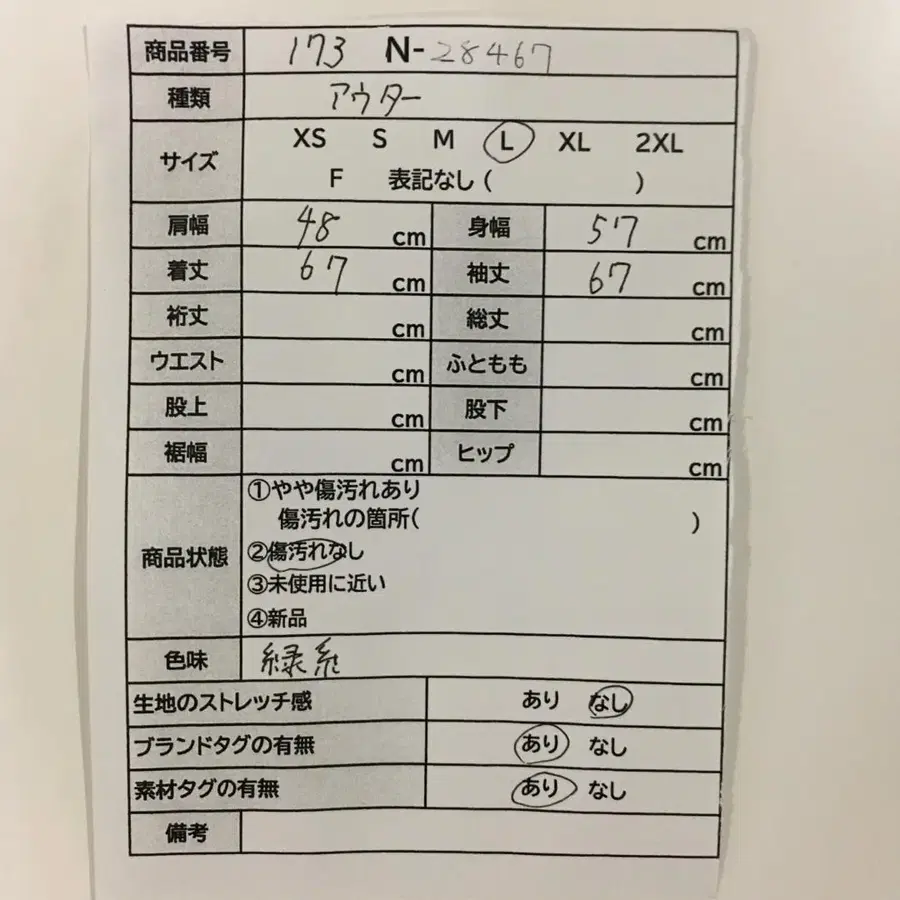 商品番号 173 N-28467
種類 アウター
サイズ XS S M L XL 2XL
F 表記なし ( )
肩幅 48 cm 身幅 57 cm
着丈 67 cm 袖丈 67 cm
裄丈 cm 総丈 cm
ウエスト cm ふともも cm
股上 cm 股下 cm
裾幅 cm ヒップ cm
商品状態 ①やや傷汚れあり
傷汚れの箇所( )
②傷汚れなし
③未使用に近い
④新品
色味 緑系
生地のストレッチ感 あり なし
ブランドタグの有無 あり なし
素材タグの有無 あり なし
備考